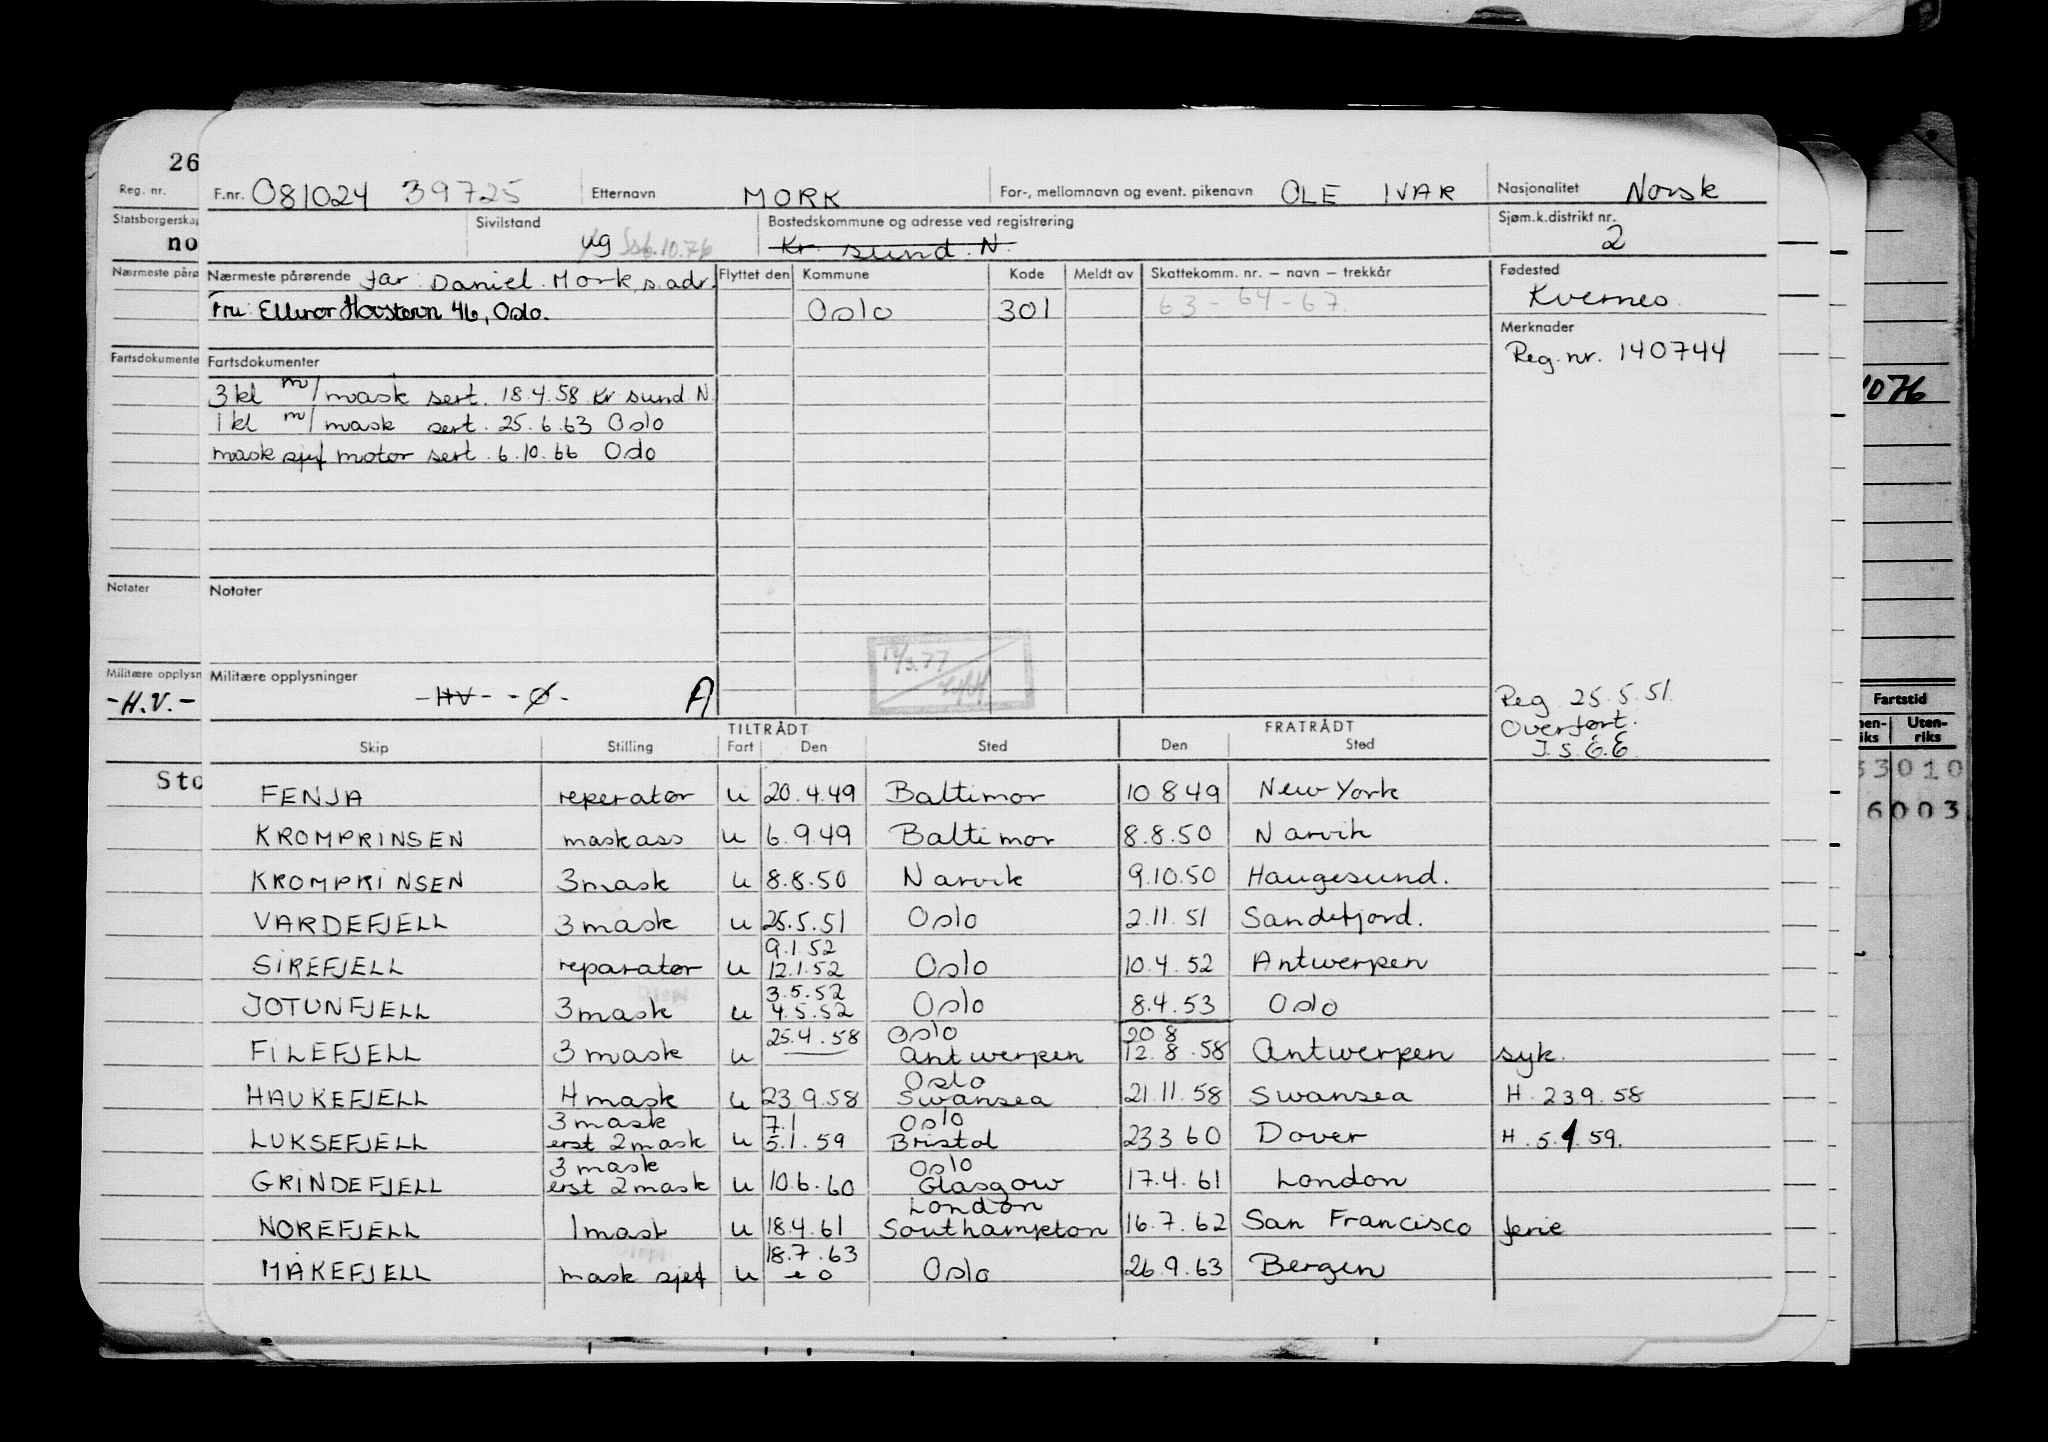 26
Reg. nr.
Statsborgerska
no
Nærmeste påro
Fartsdokumente
Notater
Militære opplysn
-H.V.-
Sto
F.nr. 081024 39725 Etternavn MORK For-, mellomnavn og event. pikenavn OLE IVAR Nasjonalitet Norsk
Sivilstand ug 6.10.76 Bostedskommune og adresse ved registrering Kr. sund. N. Sjøm.k.distrikt nr. 2
Nærmeste pårørende far: Daniel Mork, s. adr. Flyttet den Kommune Kode Meldt av Skattekomm. nr. – navn – trekkår Fødested
Kvernes
Fru: Ellinor 46, Oslo. Oslo 301 63-64-67.
Merknader
Reg. nr. 140744
Fartsdokumenter
3 kl m/mask sert. 18.4.58 Kr sund N.
1 kl m/mask sert. 25.6.63 Oslo
mask sjef motor sert. 6.10.66 Oslo
Notater
Militære opplysninger -HV- -Ø- A
Reg. 25.5.51.
Overført.
TILTRÅDT FRATRÅDT
Skip Stilling Fart Den Sted Den Sted
FENJA reperatør u 20.4.49 Baltimor 10.8.49 New York
KROMPRINSEN maskass u 6.9.49 Baltimor 8.8.50 Narvik
KROMPRINSEN 3mask u 8.8.50 Narvik 9.10.50 Haugesund.
VARDEFJELL 3mask u 25.5.51 Oslo 2.11.51 Sandefjord.
9.1.52
SIREFJELL reparatør u 12.1.52 Oslo 10.4.52 Antwerpen
3.5.52
JOTUNFJELL 3mask u 4.5.52 Oslo 8.4.53 Oslo
25.4.58 Oslo 20 8
FILEFJELL 3mask u Antwerpen 12.8.58 Antwerpen syk.
Oslo
HAUKEFJELL 4mask u 23.9.58 Swansea 21.11.58 Swansea H. 23.9.58
3mask 7.1 Oslo
LUKSEFJELL erst 2mask u 5.1.59 Bristol 23.3.60 Dover H. 5.1.59.
3mask Oslo
GRINDEFJELL erst 2mask u 10.6.60 Glasgow 17.4.61 London
London
NOREFJELL 1mask u 18.4.61 Southampton 16.7.62 San Francisco ferie
18.7.63
MAKEFJELL mask sjef u Oslo 26.9.63 Bergen
1076
Fartstid
Uten-
riks
3010
6003